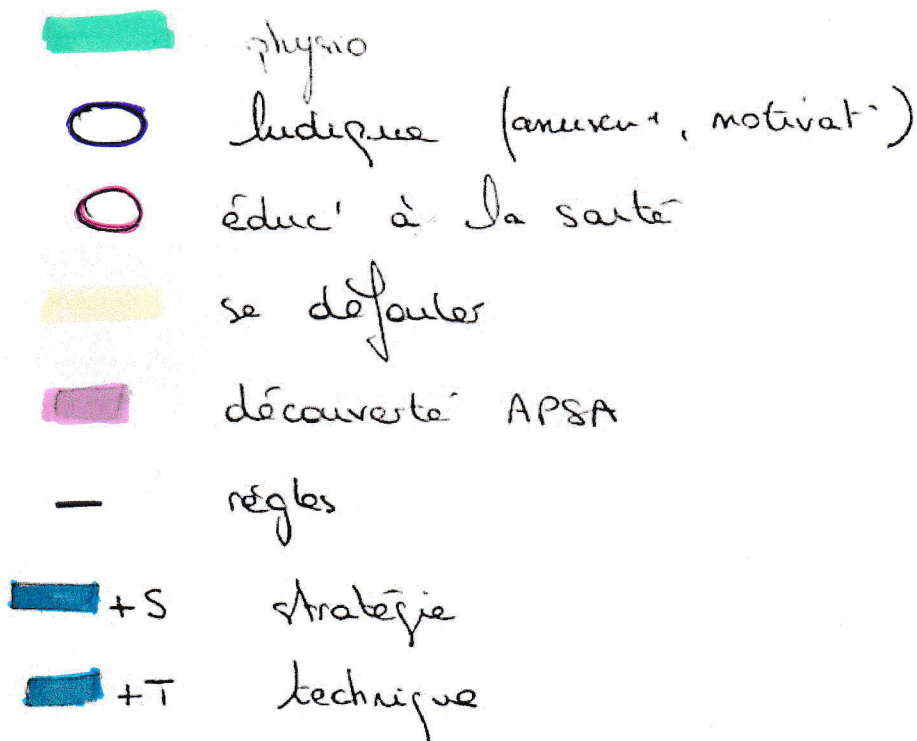 physio
ludique (amusemt, motivat°)
éduc' à la santé
se défouler
découverte APSA
règles
+S stratégie
+T technique